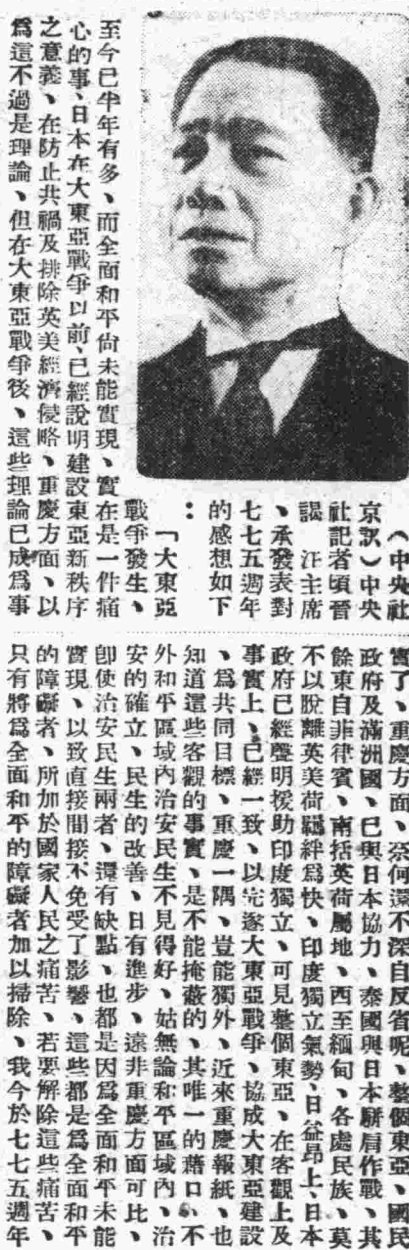 （中央社
京訊）中央
社記者頃晉
謁　汪主席
、承發表對
七七五週年
的感想如下
：
「大東亞
戰爭發生、
至今已半年有多、而全面和平尙未能實現、實在是一件痛
心的事、日本在大東亞戰爭以前、已經說明建設東亞新秩序
之意義、在防止共禍及排除英美經濟侵略、重慶方面、以
爲這不過是理論、但在大東亞戰爭後、這些理論已成爲事
實了、重慶方面、奈何還不深自反省呢、整個東亞、國民
政府及滿洲國、已與日本協力、泰國與日本駢肩作戰、其
餘東自菲律賓、南括英荷屬地、西至緬甸、各處民族、莫
不以脫離英美荷羈絆爲快、印度獨立氣勢、日益昂上、日本
政府已經聲明援助印度獨立、可見整個東亞、在客觀上及
事實上、已經一致、以完遂大東亞戰爭、協成大東亞建設
、爲共同目標、重慶一隅、豈能獨外、近來重慶報紙、也
知道這些客觀的事實、是不能掩蔽的、其唯一的藉口、不
外和平區域內治安民生不見得好、姑無論和平區域內、治
安的確立、民生的改善、日有進步、遠非重慶方面可比、
卽使治安民生兩者、還有缺點、也都是因爲全面和平未能
實現、以致直接間接不免受了影響、這些都是爲全面和平
的障礙者、所加於國家人民之痛苦、若要解除這些痛苦、
只有將爲全面和平的障礙者加以掃除、我今於七七五週年